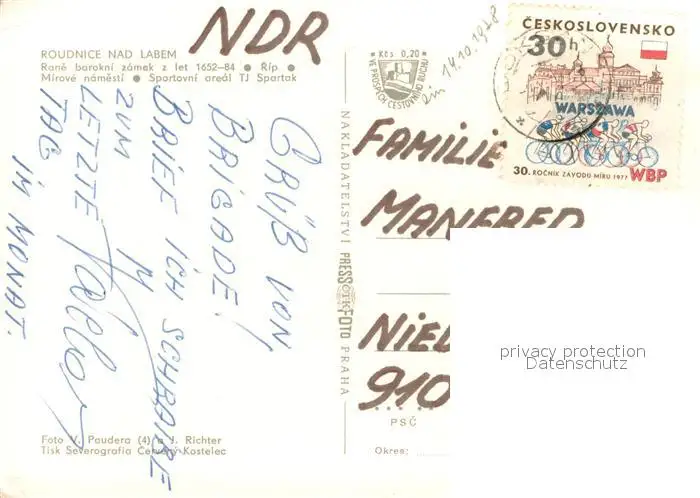 NDR
ROUDNICE NAD LABEM
Raně barokní zámek z let 1652–84 ● Říp ●
Mírové náměstí ● Sportovní areál TJ Spartak
GRÜß VON
BRIGADE!
BRIEF ICH SCHRAIBE
ZUM
LETZTE
TAG
IM MONAT.
Foto V. Paudera (4) a J. Richter
Tisk Severografia Červený Kostelec
NAKLADATELSTVÍ PRESSFOTO PRAHA
ČTK
Kčs 0,20
VE PROSPĚCH CESTOVNÍHO RUCHU
14.10.1978
ČESKOSLOVENSKO
30h
WARSZAWA
30. ROČNÍK ZÁVODU MÍRU 1977 WBP
FAMILIE
MANFRED
910
PSČ
Okres:
privacy protection
Datenschutz